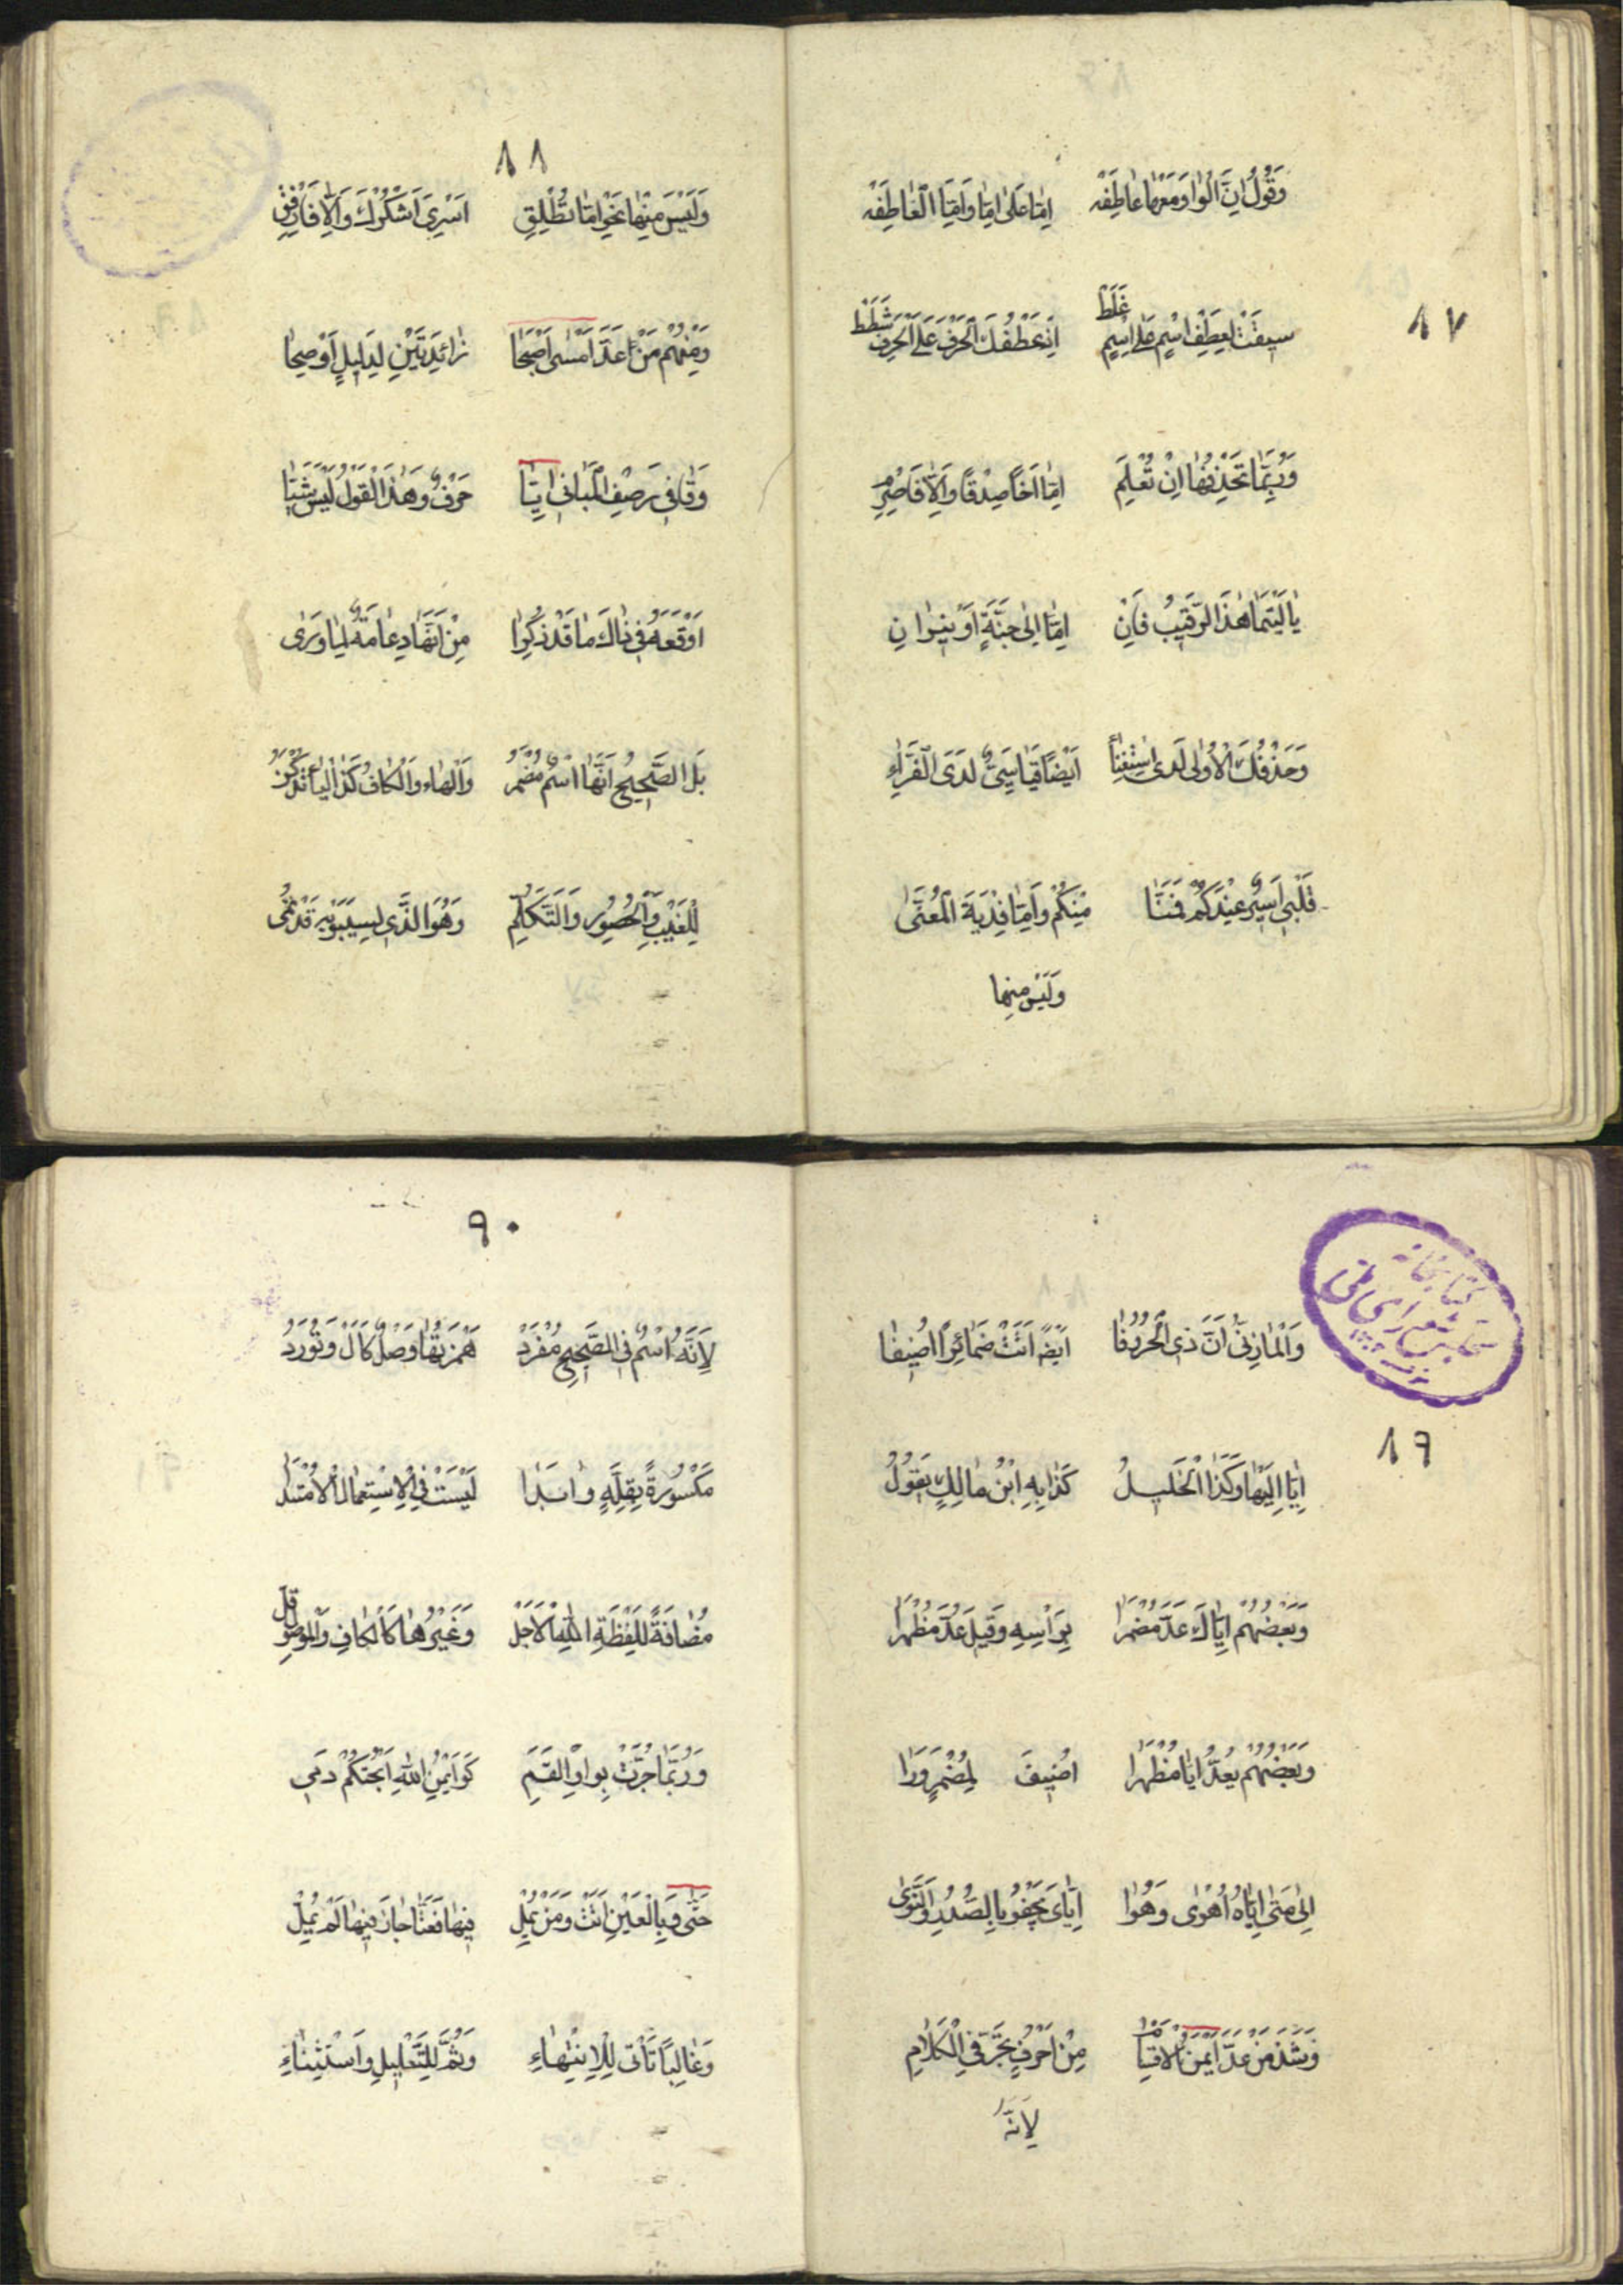 ٨٧
وَقَوْلُ اِنَّ الْوٰاوَ مَعَهٰا عٰاطِفَهْ اِمّٰا عَلٰى اِمّٰا وَاَمَّا الْعٰاطِفَهْ
سِيقَتْ لِعِطْفِ اسْمٍ عَلىٰ اسْمٍ غَلَطْ اِذْ عَطْفُكَ الْحَرْفَ عَلَى الْحَرْفِ شَطَطْ
وَرُبَّمٰا تَحْذِفُهٰا اِنْ تُعْلَمِ اِمّٰا اَخًا صِدْقًا وَاِلّٰا فَاصْرِمِ
يٰا لَيْتَمٰا هٰذَا الرَّقِيبُ فٰانِ اِمّٰا اِلىٰ جَنَّةٍ اَوْ نِيرٰانِ
وَحَذْفُكَ الْاُولىٰ لَدَى اسْتِغْنٰاءِ اَيْضًا قِيَاسِىٌّ لَدَى الْفَرّٰاءِ
قَلْبِى اَسِيرٌ عِنْدَكُمْ فَمَنّٰا مِنْكُمْ وَاِمّٰا فِدْيَةَ الْمُعَنّٰى
وَلَيْسَ مِنهٰا
٨٨
وَلَيْسَ مِنْهٰا نَحْوُ اِمّٰا تُطْلِقِ اَسْرِى اَشْكُرْكَ وَاِلّٰا فَارْفِقِ
وَمِنْهُمْ مَنْ عَدَّ اَمْسىٰ اَصْبَحٰا زٰائِدَتَيْنِ لِدَلِيلٍ اَوْضَحٰا
وَقٰا فِى رَصْفِ الْمَبٰانِى اِيّٰا حَرْفٌ وَهٰذَا الْقَوْلُ لَيْسَ شَيّٰا
اَوْقَعَهُ فِى ذٰاكَ مٰا قَدْ ذَكَرُوا مِنْ اَنَّهٰا دِعٰامَةٌ لِمٰا وَرٰى
بَلِ الصَّحِيحُ اَنَّهَا اسْمٌ مُضْمَرُ وَالْهٰاءُ وَالْكٰافُ كَذَا الْيٰا تُذْكَرُ
لِلْغَيْبِ وَالْحُضُورِ وَالتَّكَلُّمِ وَهُوَ الَّذِى لِسِيبَوَيْهِ قَدْ نُمِى
٨٩
وَالْمٰازِنِىُّ اَنَّ ذِى الْحُرُوفٰا اَيْضًا اَتَتْ ضَمٰائِرًا اُضِيفٰا
اِيّٰا اِلَيْهٰا وَكَذَا الْخَلِيلُ كَذٰا بِهِ ابْنُ مٰالِكٍ يَقُولُ
وَبَعْضُهُمْ اِيّٰاكَ عَدَّ مُضْمَرٰا بِرَاْسِهِ وَقِيلَ عُدَّ مُظْهَرٰا
وَبَعْضُهُمْ يَعُدُّ اِيّٰا مُظْهَرٰا اُضِيفَ لِمُضْمَرٍ وَرٰا
اِلىٰ مَتىٰ اِيّٰاهُ اَهْوٰى وَهُوٰا اِيّٰاىَ يَجْفُو بِالصُّدُودِ وَالنَّوىٰ
وَشَذَّ مَنْ عَدَّ اَيْمُنَ الْاَقْسٰامِ مِنْ اَحْرُفٍ تَجُرُّ فِى الْكَلٰامِ
لِاَنَّهُ
٩٠
لِاَنَّهُ اسْمٌ فِى الصَّحِيحِ مُفْرَدْ هَمْزَتُهٰا وَصْلٌ كَاَلْ وَتُورَدْ
مَكْسُورَةً بِقِلَّةٍ وَابَدٰا لَيْسَتْ فِى الْاِسْتِعْمٰالِ
مُضٰافَةً لِلَفْظَةِ اللهِ الْاَجَلْ وَغَيْرُهٰا كَالْكٰافِ وَالْمَوْصُولِ قَلْ
وَرُبَّمٰا جُرَّتْ بِوٰاوِ الْقَسَمِ كَوَايْمُنِ اللهِ اَبَحْتُكُمْ دَمِى
حَتّٰى وَبِالْعَيْنِ اَتَتْ وَمَنْ يُمِلْ فِيهٰا فَعَتّٰا جٰازَ فِيهٰا لَمْ يُمِلْ
وَغٰالِبًا تَاْتِى لِلِانْتِهٰاءِ وَثُمَّ لِلتَّعْلِيلِ وَاسْتِثْنٰاءِ